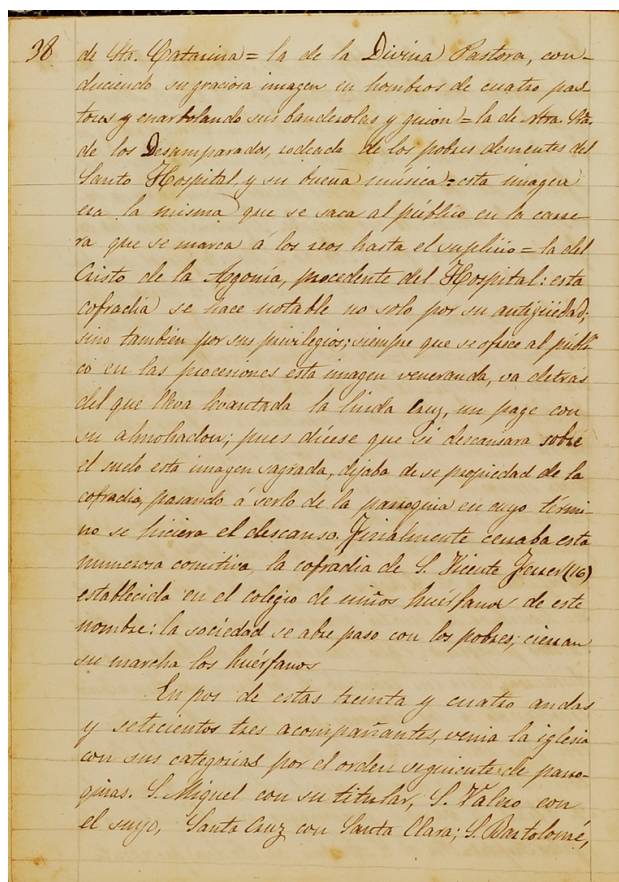 38 de Sta. Catarina = la de la Divina Pastora, con-
duciendo su graciosa imagen en hombros de cuatro pas-
tores y enarbolando sus banderolas y guion = la de Ntra. Sra.
de los Desamparados, rodeada de los pobres dementes del
Santo Hospital, y su buena música = esta imagen
era la misma que se saca al público en la carre
ra que se marca á los reos hasta el suplicio = la del
Cristo de la Agonía, procedente del Hospital: esta
cofradia se hace notable no solo por su antigüedad,
sino tambien por sus privilegios; siempre que se ofrece al públi
co en las procesiones esta imagen veneranda, va detrás
del que lleva levantada la linda cruz, un page con
su almohadon; pues dícese que si descansara sobre
el suelo esta imagen sagrada, dejaba de se propiedad de la
cofradia, pasando á serlo de la parroquia en cuyo térmi-
no se hiciera el descanso. Finalmente cerraba esta
numerosa comitiva, la cofradia de S. Vicente Ferrer (16)
establecida en el colegio de niños huérfanos de este
nombre: la sociedad se abre paso con los pobres; cierran
su marcha los huérfanos
En pos de estas treinta y cuatro andas
y setecientos tres acompañantes, venia la iglesia
con sus categorias por el orden siguiente de parro-
quias. S. Miguel con su titular, S. Valero con
el suyo, Santa Cruz con Santa Clara; S. Bartolomé,